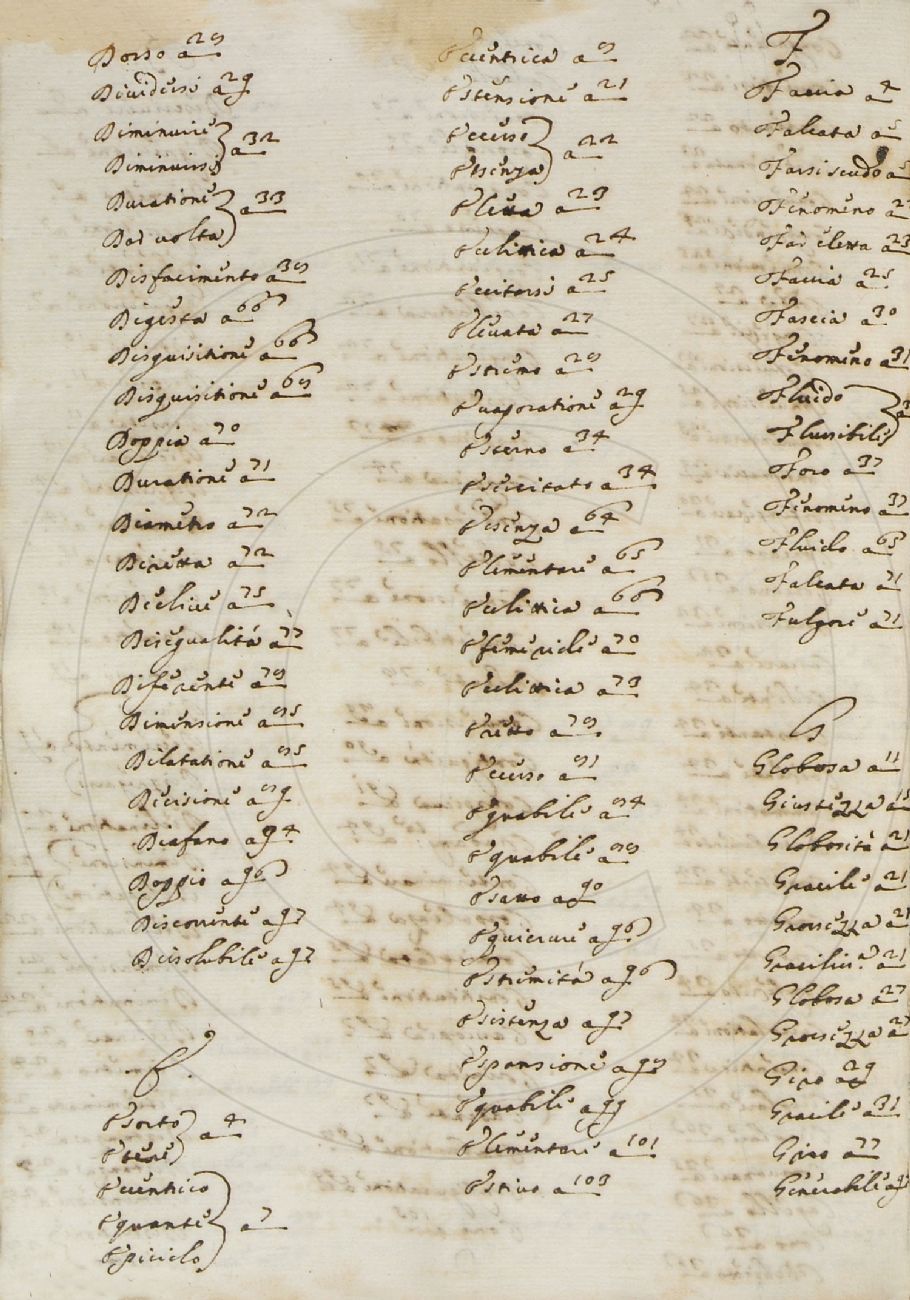 Dorso a 28
Dividersi a 29
Diminuire
Diminuirsi a 32
Duratione
Dar volta a 33
Disfacimento a 38
Digesta a 66
Disquisitione a 66
Disquisitione a 68
Doppia a 70
Duratione a 71
Diametro a 72
Diretta a 72
Declive a 75
Disegualità a 77
Diferente a 78
Dimensione a 85
Dilatatione a 85
Decisione a 89
Diafano a 94
Doppio a 96
Discorrente a 97
Dissolubile a 97
E
Esorto
Etere a 4
Eccentrico
Equante
Epiciclo a 7
Eccentrica a 8
Estensione a 21
Eccesso
Essenza a 22
Eletta a 23
Eclittica a 24
Eccitarsi a 25
Elevata a 27
Estremo a 28
Evaporatione a 29
Esterno a 34
Esercitato a 34
Essenza a 64
Elementare a 65
Eclittica a 66
Efemeride a 70
Eclittica a 73
Eretto a 78
Eccesso a 81
Equabile a 84
Equabile a 88
Esatto a 90
Equicrure a 96
Estremità a 96
Esistenza a 97
Espansione a 98
Equabile a 99
Elementare a 101
Estivo a 103
F
Faccia a 4
Falcata a 5
Farsi scudo a 5
Fenomeno a
Far eletta a 23
Faccia a 25
Fascia a 30
Fenomeno a 31
Fluido
Flussibile a 3
Foro a 37
Fenomeno a 37
Fluido a 65
Falcata a 71
Fulgore a 71
G
Globosa a 11
Giustezza a 15
Globosità a 21
Gracile a 21
Grossezza a 21
Gracilità a 21
Globosa a 27
Grossezza a 2
Giro a 29
Gracile a 31
Giro a 77
Generabile a